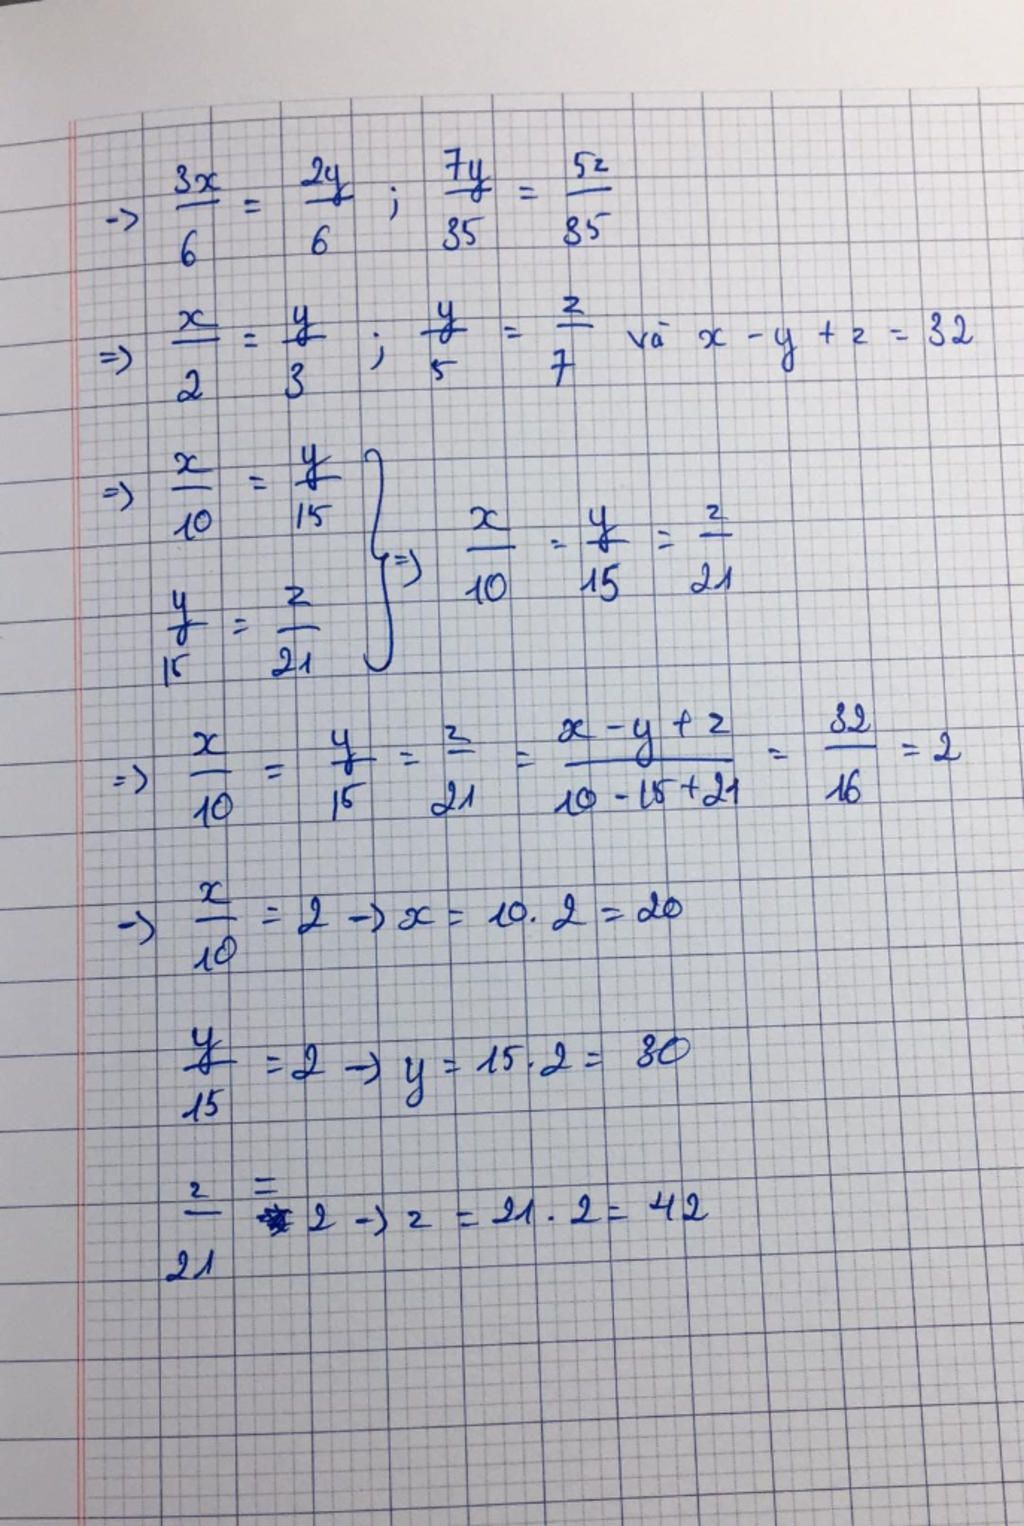 -> 3x/6 = 2y/6 ; 7y/35 = 5z/35
=> x/2 = y/3 ; y/5 = z/7 và x - y + z = 32
=> x/10 = y/15
y/15 = z/21 } => x/10 = y/15 = z/21
=> x/10 = y/15 = z/21 = (x - y + z)/(10 - 15 + 21) = 32/16 = 2
-> x/10 = 2 -> x = 10. 2 = 20
y/15 = 2 -> y = 15. 2 = 30
z/21 = 2 -> z = 21. 2 = 42